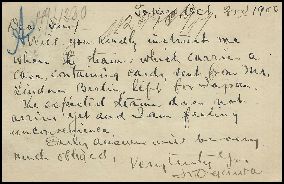 Tokyo Oct. 3rd 1900
Dear Sirs:
Will you kindly instruct me
when the steamer which carries a
case containing cards sent from Mr.
Linden Berlin, left for Japan.
The expected steamer does not
arrive yet and I am feeling
inconvenience.
Early answer will be very
much obliged,
Very truly yours,